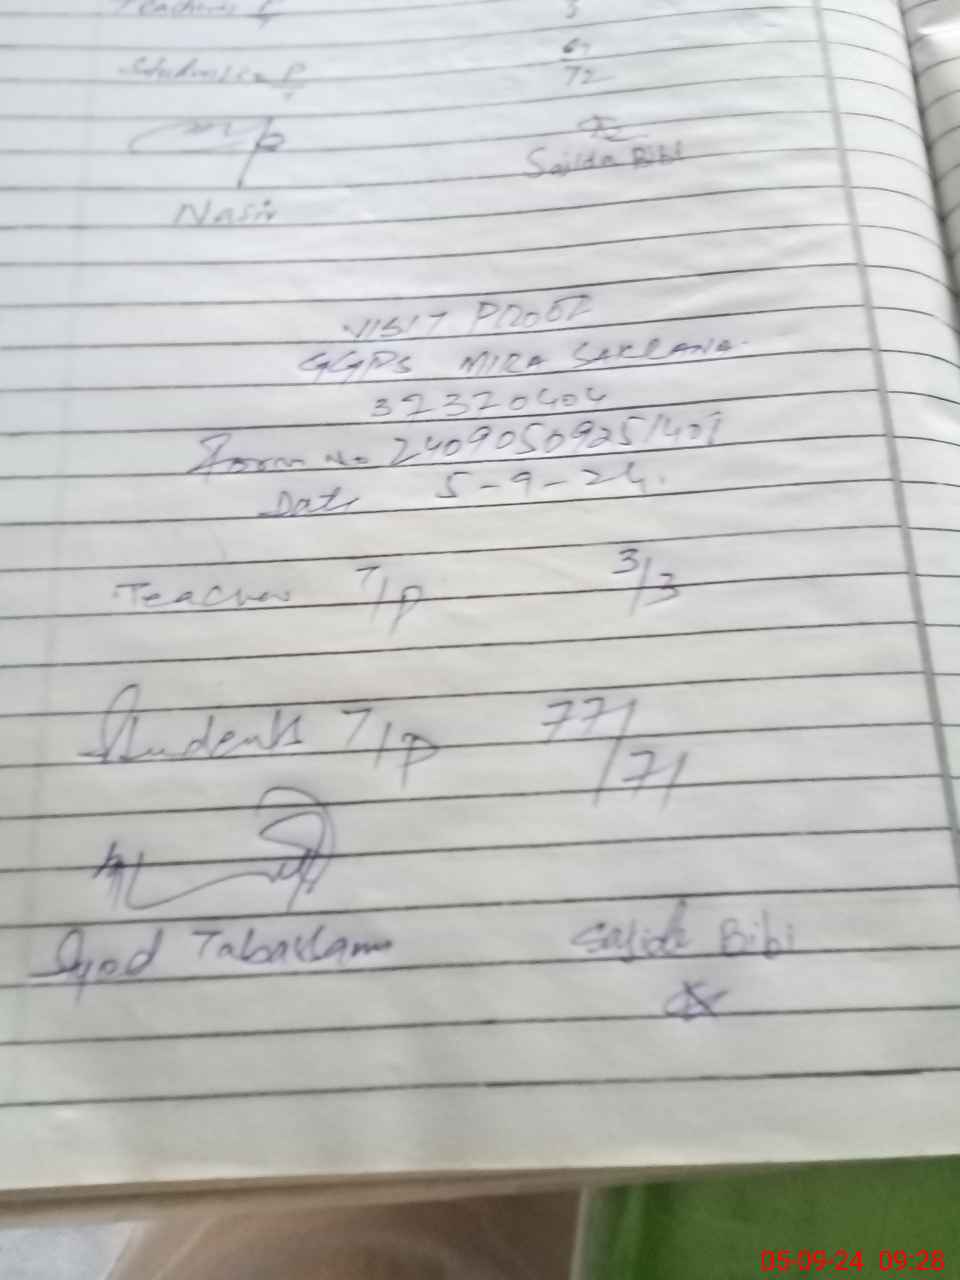 Teachers P
3
Students P
67
72
Sajida Bibi
Nasir
VISIT PROOF
GGPS MIRA SAKRANA.
37320404
Form No 24090509251401
Date 5-9-24.
Teacher T/P 3/3
Students T/P 77/71
Syed Sajida Bibi
05-09-24 09:28